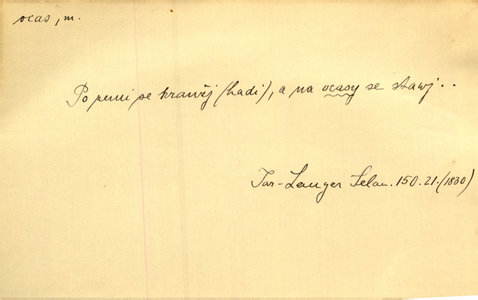 ocas, m.
Po zemi se kraužj (hadi), a na ocasy se stawj..
Jar-Langer Selan. 150.21. (1830)